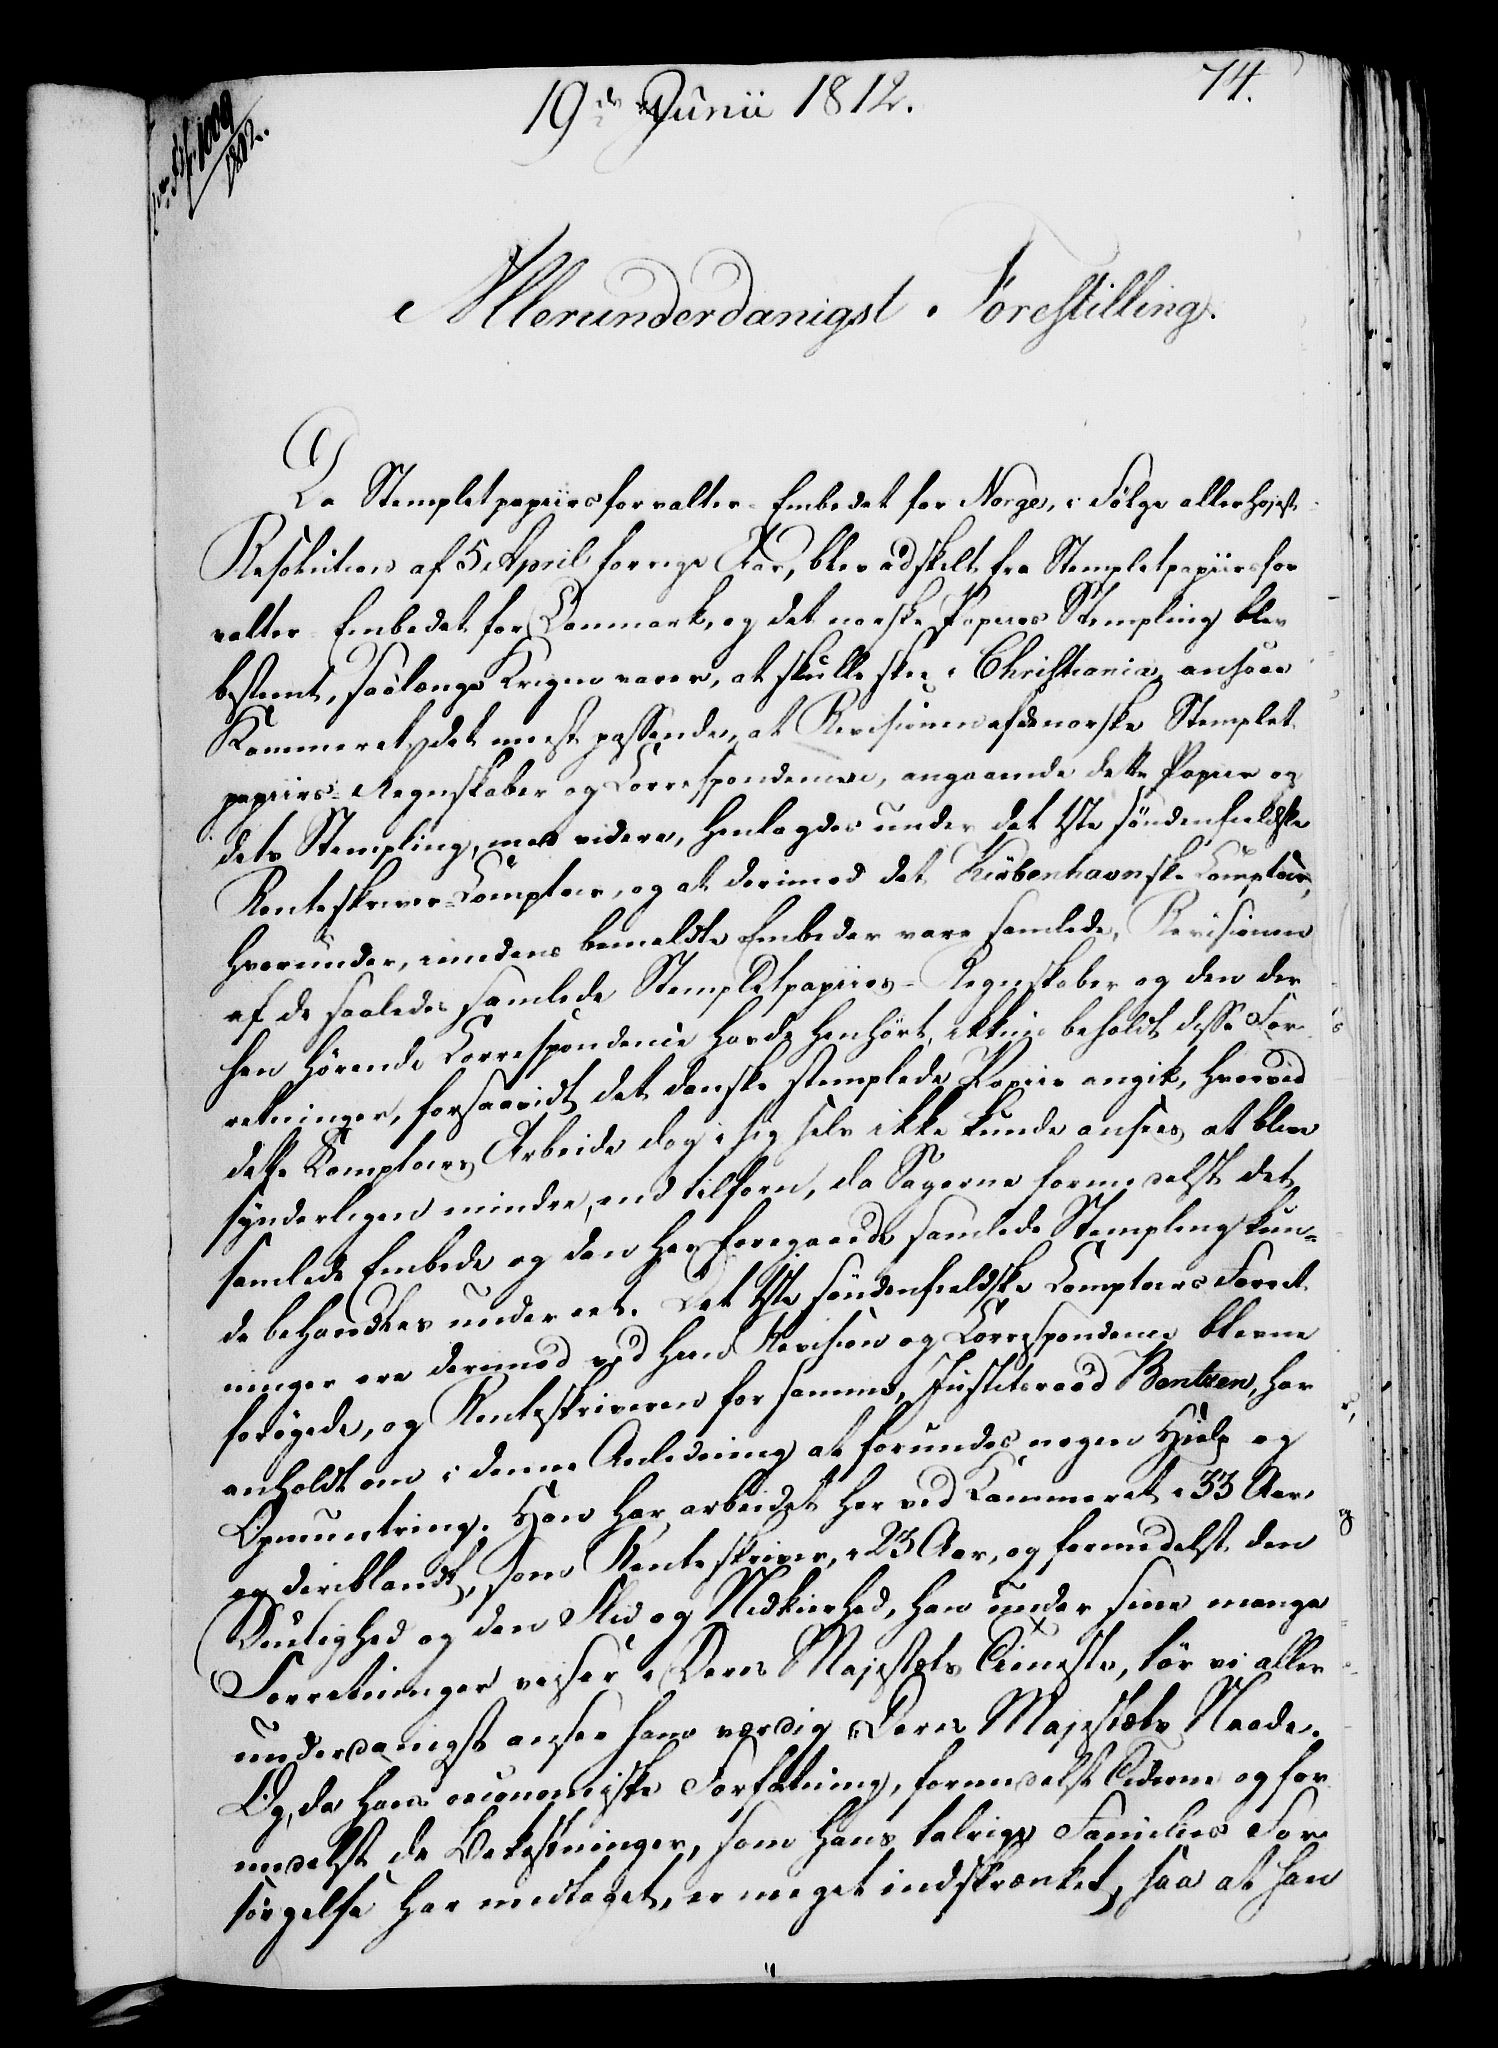 19de Junii 1812.
74.
1009
1812.
Allerunderdanigst Forestilling.
Da Stempletpapiirsforvalter-Embedet for Norge, i Følge allerhøjest
Resolution af 5 April forrige Aar, blev adskelt fra Stempletpapiirsfor
valter-Embedet for Danmark, og det norske Papiirs Stempling blev
bestemt, saalænge Krigen varer, at skulle skee i Christiania, ansaae
Kammeret det meest passende, at Revisionen af de norske Stemplet
papiirs-Regnskaber og Correspondencen, angaaende dette Papiir og
dets Stempling, med videre, henlagdes under det 1ste søndenfieldske
Renteskriver-Comptoir, og at derimod det Kiøbenhavnske Comptoir,
hvorunder, imedens bemeldte Embeder vare samlede, Revisionen
af de saaledes samlede Stempletpapiirs-Regnskaber og den der
hen hørende Correspondence havde henhørt, ikkun beholdt disse For
retninger, forsaavidt det danske stemplede Papiir angik, hvorved
dette Comptoirs Arbeide dog i sig selv ikke kunde ansees at blive
synderligen mindre, end tilforn, da Sagerne formedelst det
samlede Embede og den her foregaaede samlede Stempling kun-
de behandles under eet. Det 1ste søndenfieldske Comptoirs Forret
ninger ere derimod ved hiin Revision og Correspondence blevne
forøgede, og Renteskriveren for samme, Justitsraad Bentzen, har
anholdt om i denne Anledning at forundes nogen Hielp og
Opmuntring. Han har arbeidet her ved Kammeret i 33 Aar,
og deriblandt, som Renteskriver, i 23 Aar, og formedelst den
Duelighed og den Flid og Nidkierhed, han under sine mange
Forretninger viser i Deres Majestæts Tieneste, tør vi aller
underdanigst ansee ham værdig Deres Majestæts Naade.
Og, da hans oeconomiske Forfatning, formedelst Tiderne og for
medelst de Bekostninger, som hans talrige Families For
sørgelse har medtaget, er meget indskrænket, saa at han